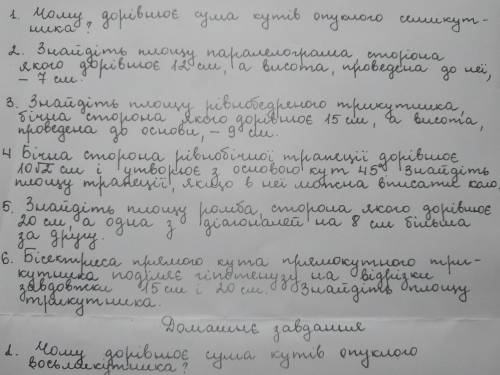 1. Чому дорівнює сума кутів опуклого семикут-
ника?
2. Знайдіть площу паралелограма, сторона
якого дорівнює 12 см, а висота, проведена до неї,
– 7 см.
3. Знайдіть площу рівнобедреного трикутника,
бічна сторона якого дорівнює 15 см, а висота,
проведена до основи, – 9 см.
4 Бічна сторона рівнобічної трапеції дорівнює
10√2 см і утворює з основою кут 45°. Знайдіть
площу трапеції, якщо в неї можна вписати коло.
5. Знайдіть площу ромба, сторона якого дорівнює
20 см, а одна з діагоналей на 8 см більша
за другу.
6. Бісектриса прямого кута прямокутного три-
кутника поділяє гіпотенузу на відрізки
завдовжки 15 см і 20 см. Знайдіть площу
трикутника.
Домашнє завдання
1. Чому дорівнює сума кутів опуклого
восьмикутника?